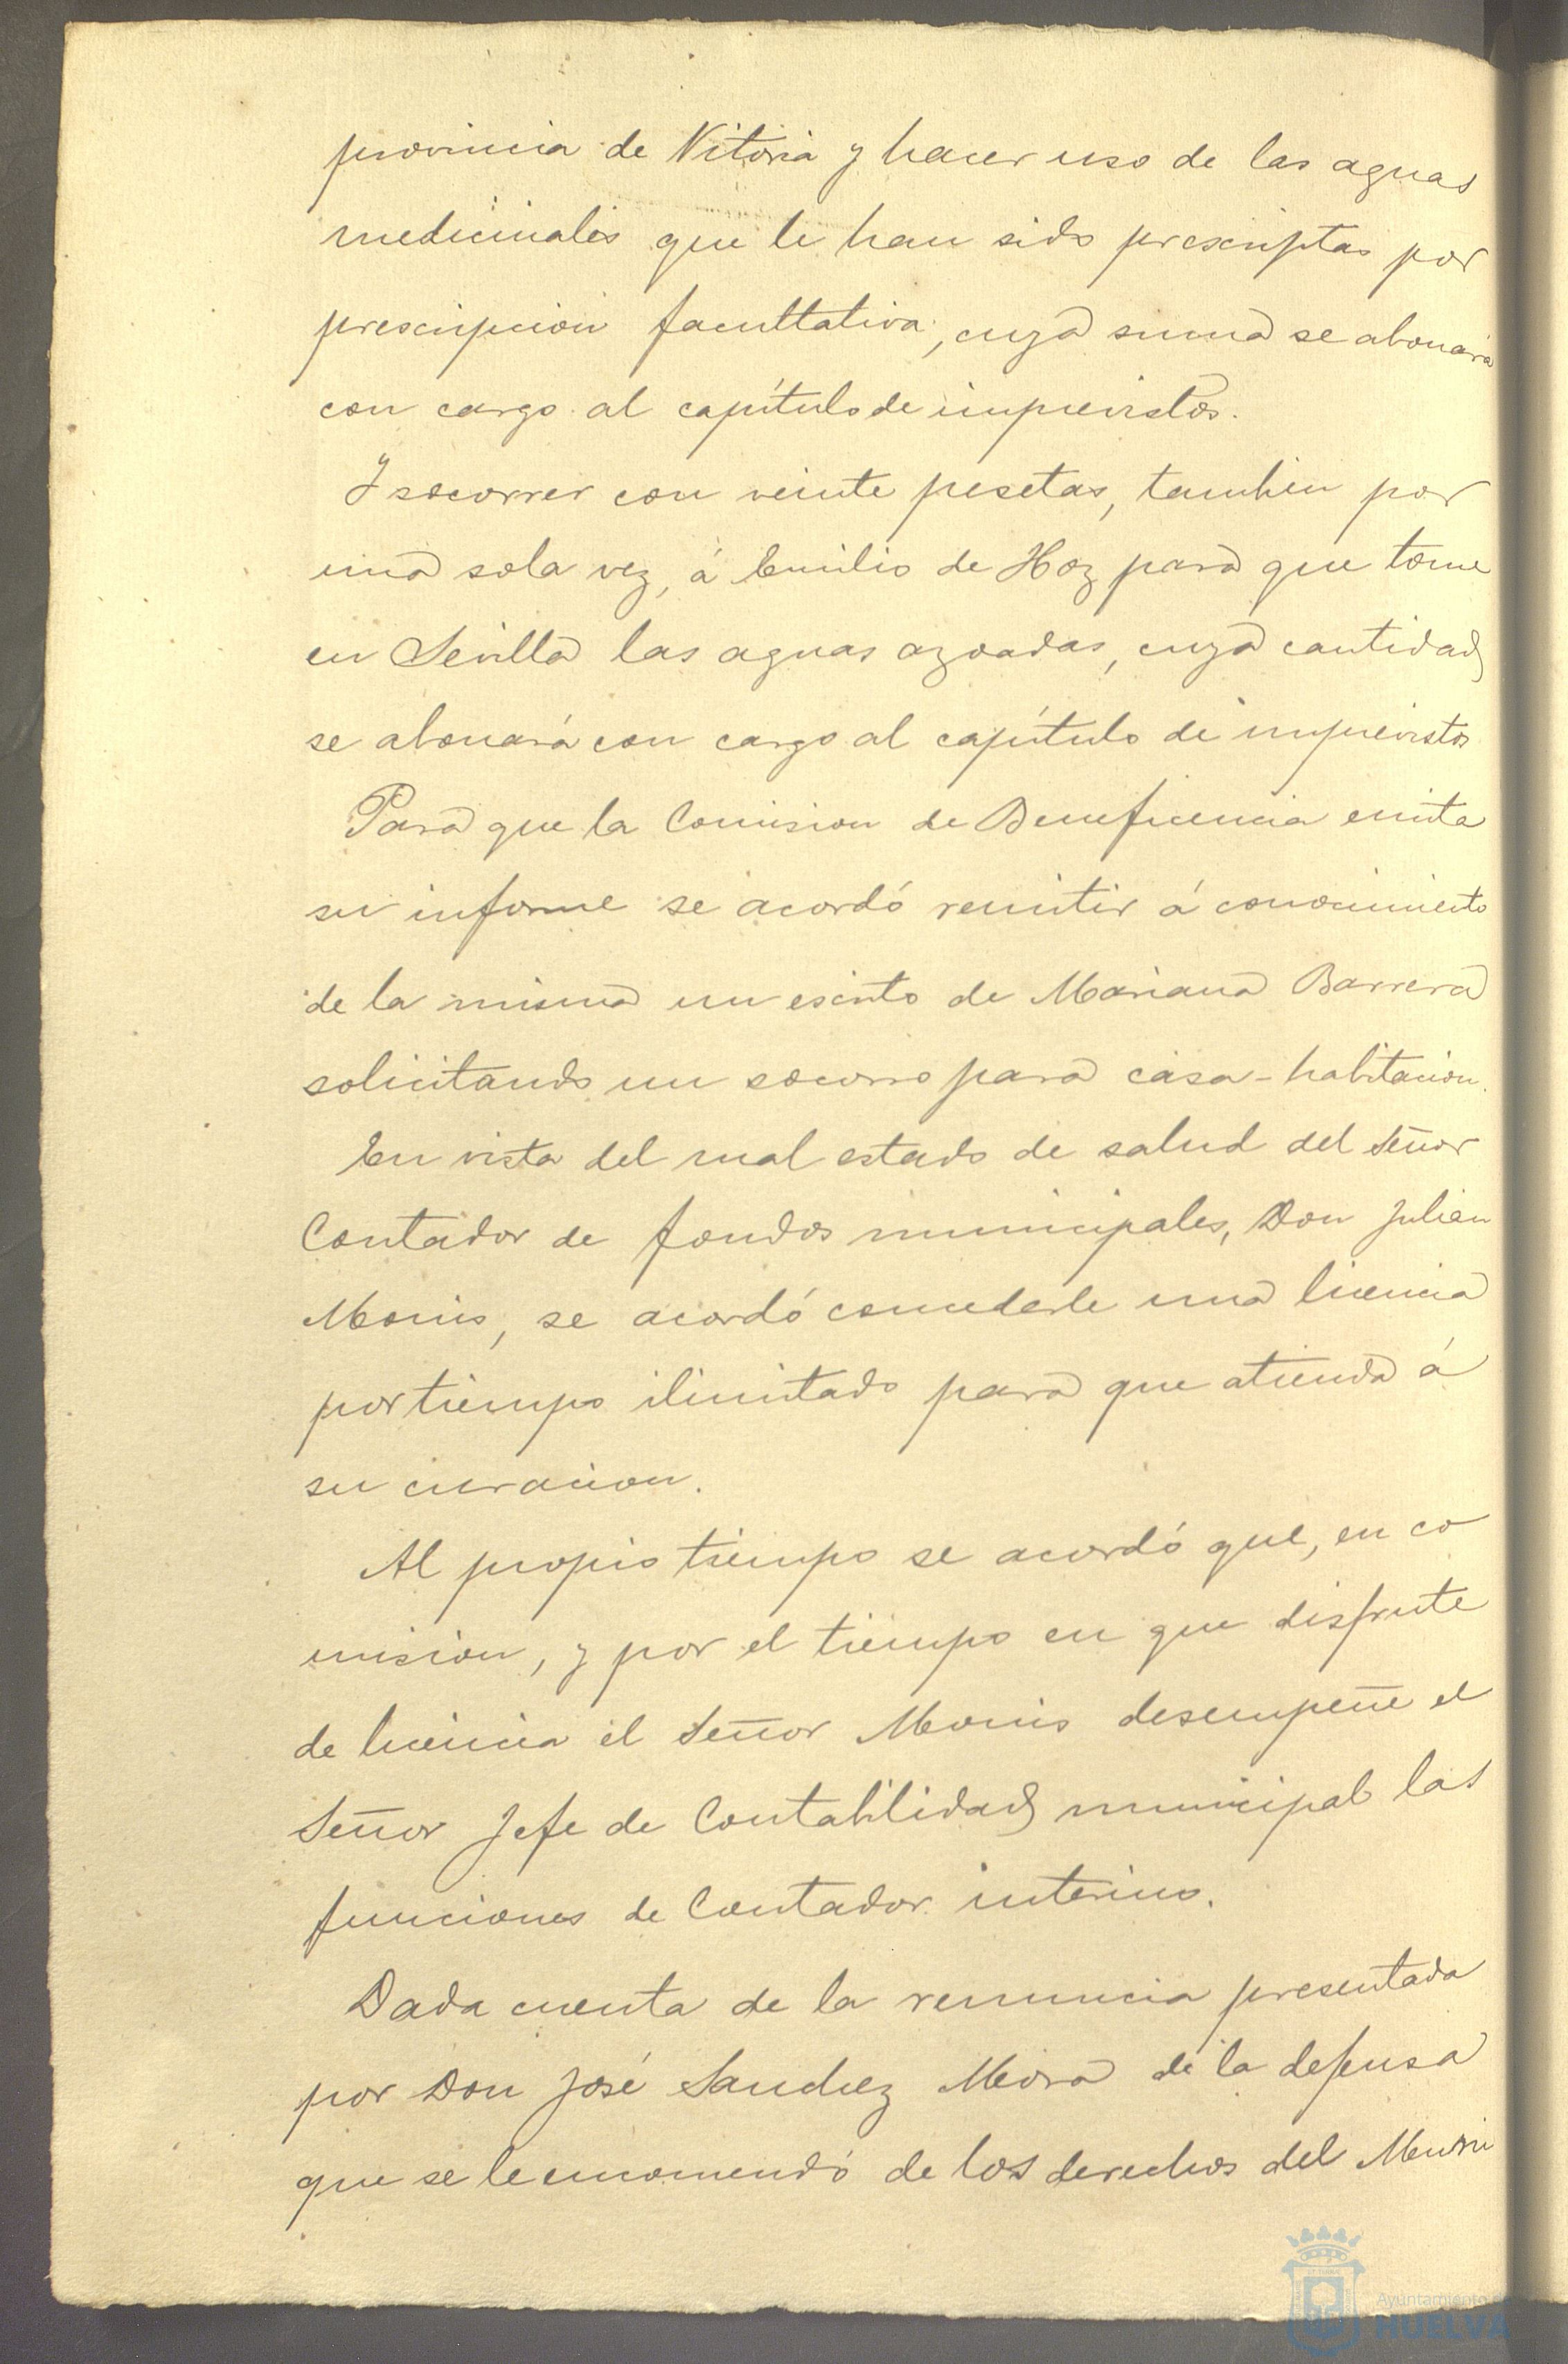 provincia de Vitoria y hacer uso de las aguas
medicinales que le han sido prescriptas por
prescripcion facultativa, cuya suma se abonará
con cargo al capítulo de imprevistos.
Y socorrer con veinte pesetas, tambien por
una sola vez, á Emilio de Hoz para que tome
en Sevilla las aguas azoadas, cuya cantidad
se abonará con cargo al capítulo de imprevistos
Para que la Comision de Beneficencia emita
su informe se acordó remitir á conocimiento
de la misma un escrito de Mariana Barrera
solicitando un socorro para casa-habitacion.
En vista del mal estado de salud del Señor
Contador de fondos municipales, Don Julian
Monis, se acordó concederle una licencia
por tiempo ilimitado para que atienda á
su curacion.
Al propio tiempo se acordó que, en co
mision, y por el tiempo en que disfrute
de licencia el Señor Monis desempeñe el
Señor Jefe de Contabilidad municipal las
funciones de Contador interino.
Dada cuenta de la renuncia presentada
por Don José Sanchez Mora de la defensa
que se le encomendó de los derechos del Muni
Ayuntamiento
HUELVA